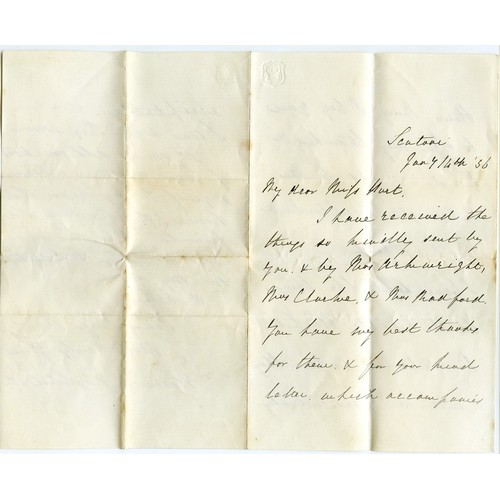 Scutari
Jany 14th '56
My dear Miss Hurt,
I have received the
things so kindly sent by
you, & by Mrs Arkwright,
Mrs Clarke, & Mrs Bradford.
You have my best thanks
for them, & for your kind
letter, which accompanies